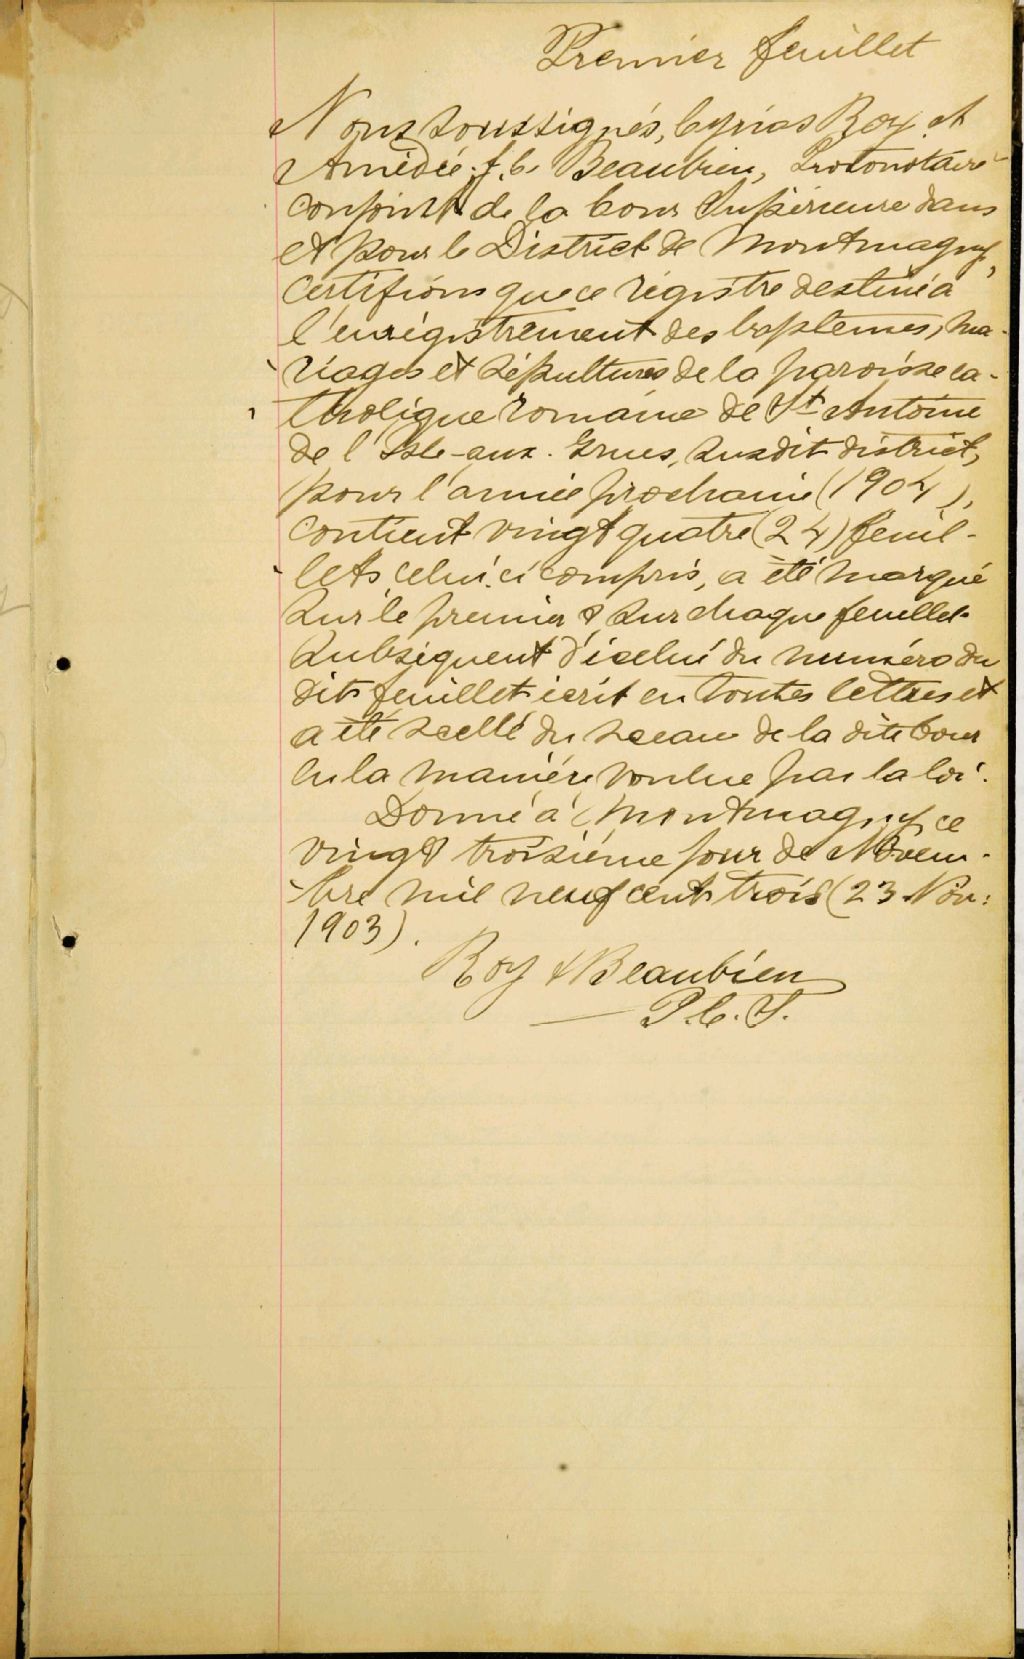 Premier feuillet
Nous soussignés, Cyrias Roy et
Amédée J. C. Beaubien, Protonotaire
conjoint de la Cour Supérieure dans
et pour le District de Montmagny,
certifions que ce régistre destiné à
l'enrégistrement des baptêmes, ma-
riages et sépultures de la paroisse ca-
tholique romaine de St Antoine
de l'Isle-aux-Grues, susdit district,
pour l'année prochaine (1904),
contient vingt quatre (24) feuil-
lets, celui-ci compris, a été marqué
sur le premier & sur chaque feuillet
subséquent d'icelui du numéro du
dit feuillet écrit en toutes lettres et
a été scellé du sceau de la dite Cour
en la manière voulue par la loi.
Donné à Montmagny, ce
vingt troisième jour de Novem-
bre mil neuf cent trois (23 Nov:
1903).
Roy & Beaubien
P. C. S.